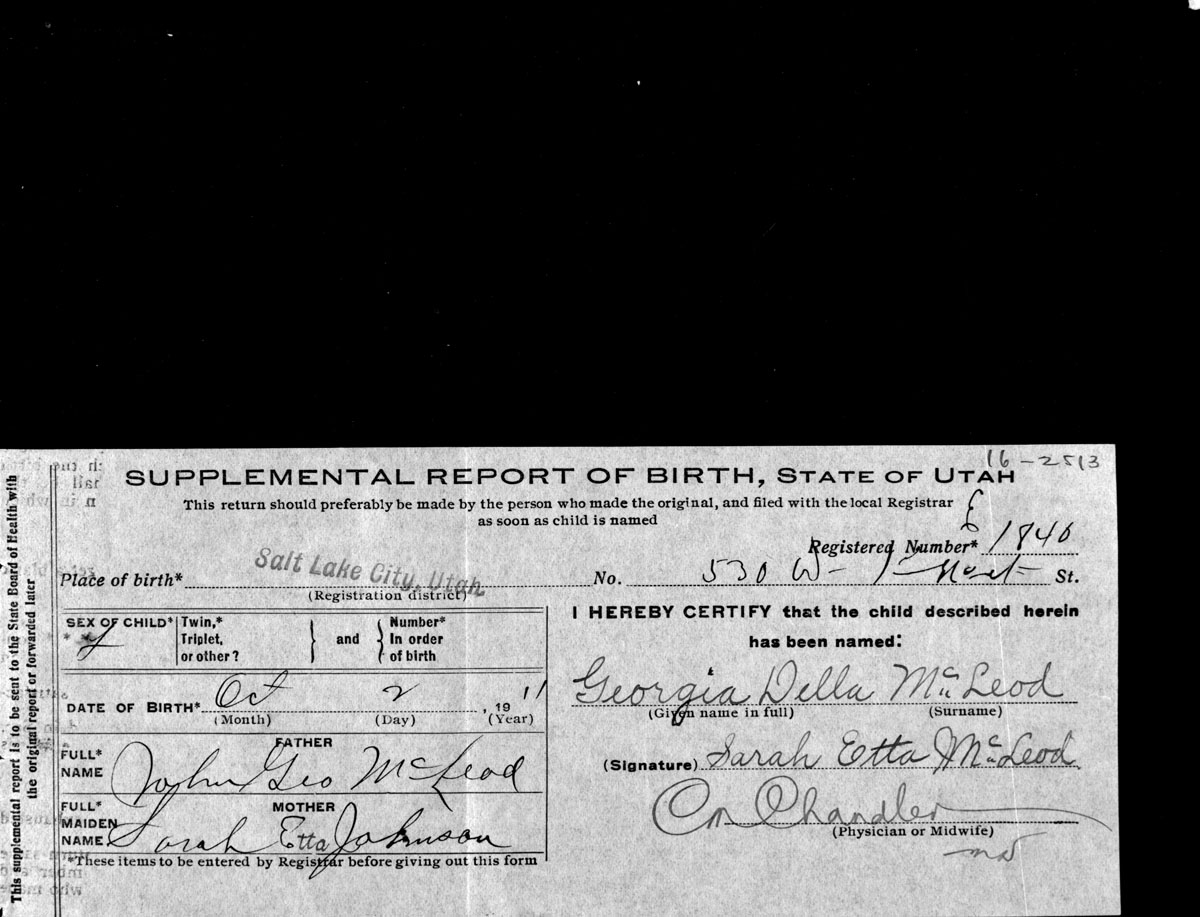 16-2513
SUPPLEMENTAL REPORT OF BIRTH, STATE OF UTAH
This return should preferably be made by the person who made the original, and filed with the local Registrar
as soon as child is named
Registered Number* 1840
Place of birth* Salt Lake City, Utah No. 530 W- St.
(Registration district)
SEX OF CHILD* Twin,* Triplet, or other? } and { Number* In order of birth
f
DATE OF BIRTH* Oct 2, 1911
(Month) (Day) (Year)
FATHER
FULL* NAME John Geo McLeod
MOTHER
FULL* MAIDEN NAME Sarah Etta Johnson
*These items to be entered by Registrar before giving out this form
I HEREBY CERTIFY that the child described herein
has been named:
Georgia Della McLeod
(Given name in full) (Surname)
(Signature) Sarah Etta McLeod
Chandler
(Physician or Midwife)
MD
This supplemental report is to be sent to the State Board of Health with
the original report or forwarded later